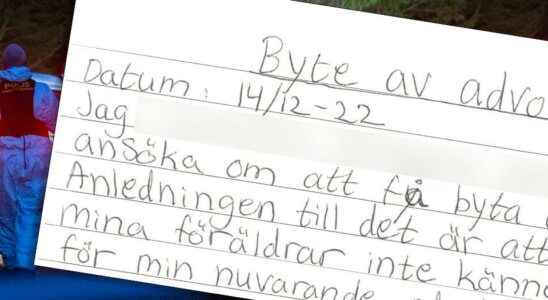 Byte av advo
Datum: 14/12-22
Jag
ansöka om att få byta
Anledningen till det är att
mina föräldrar inte känne
för min nuvarande
POLIS